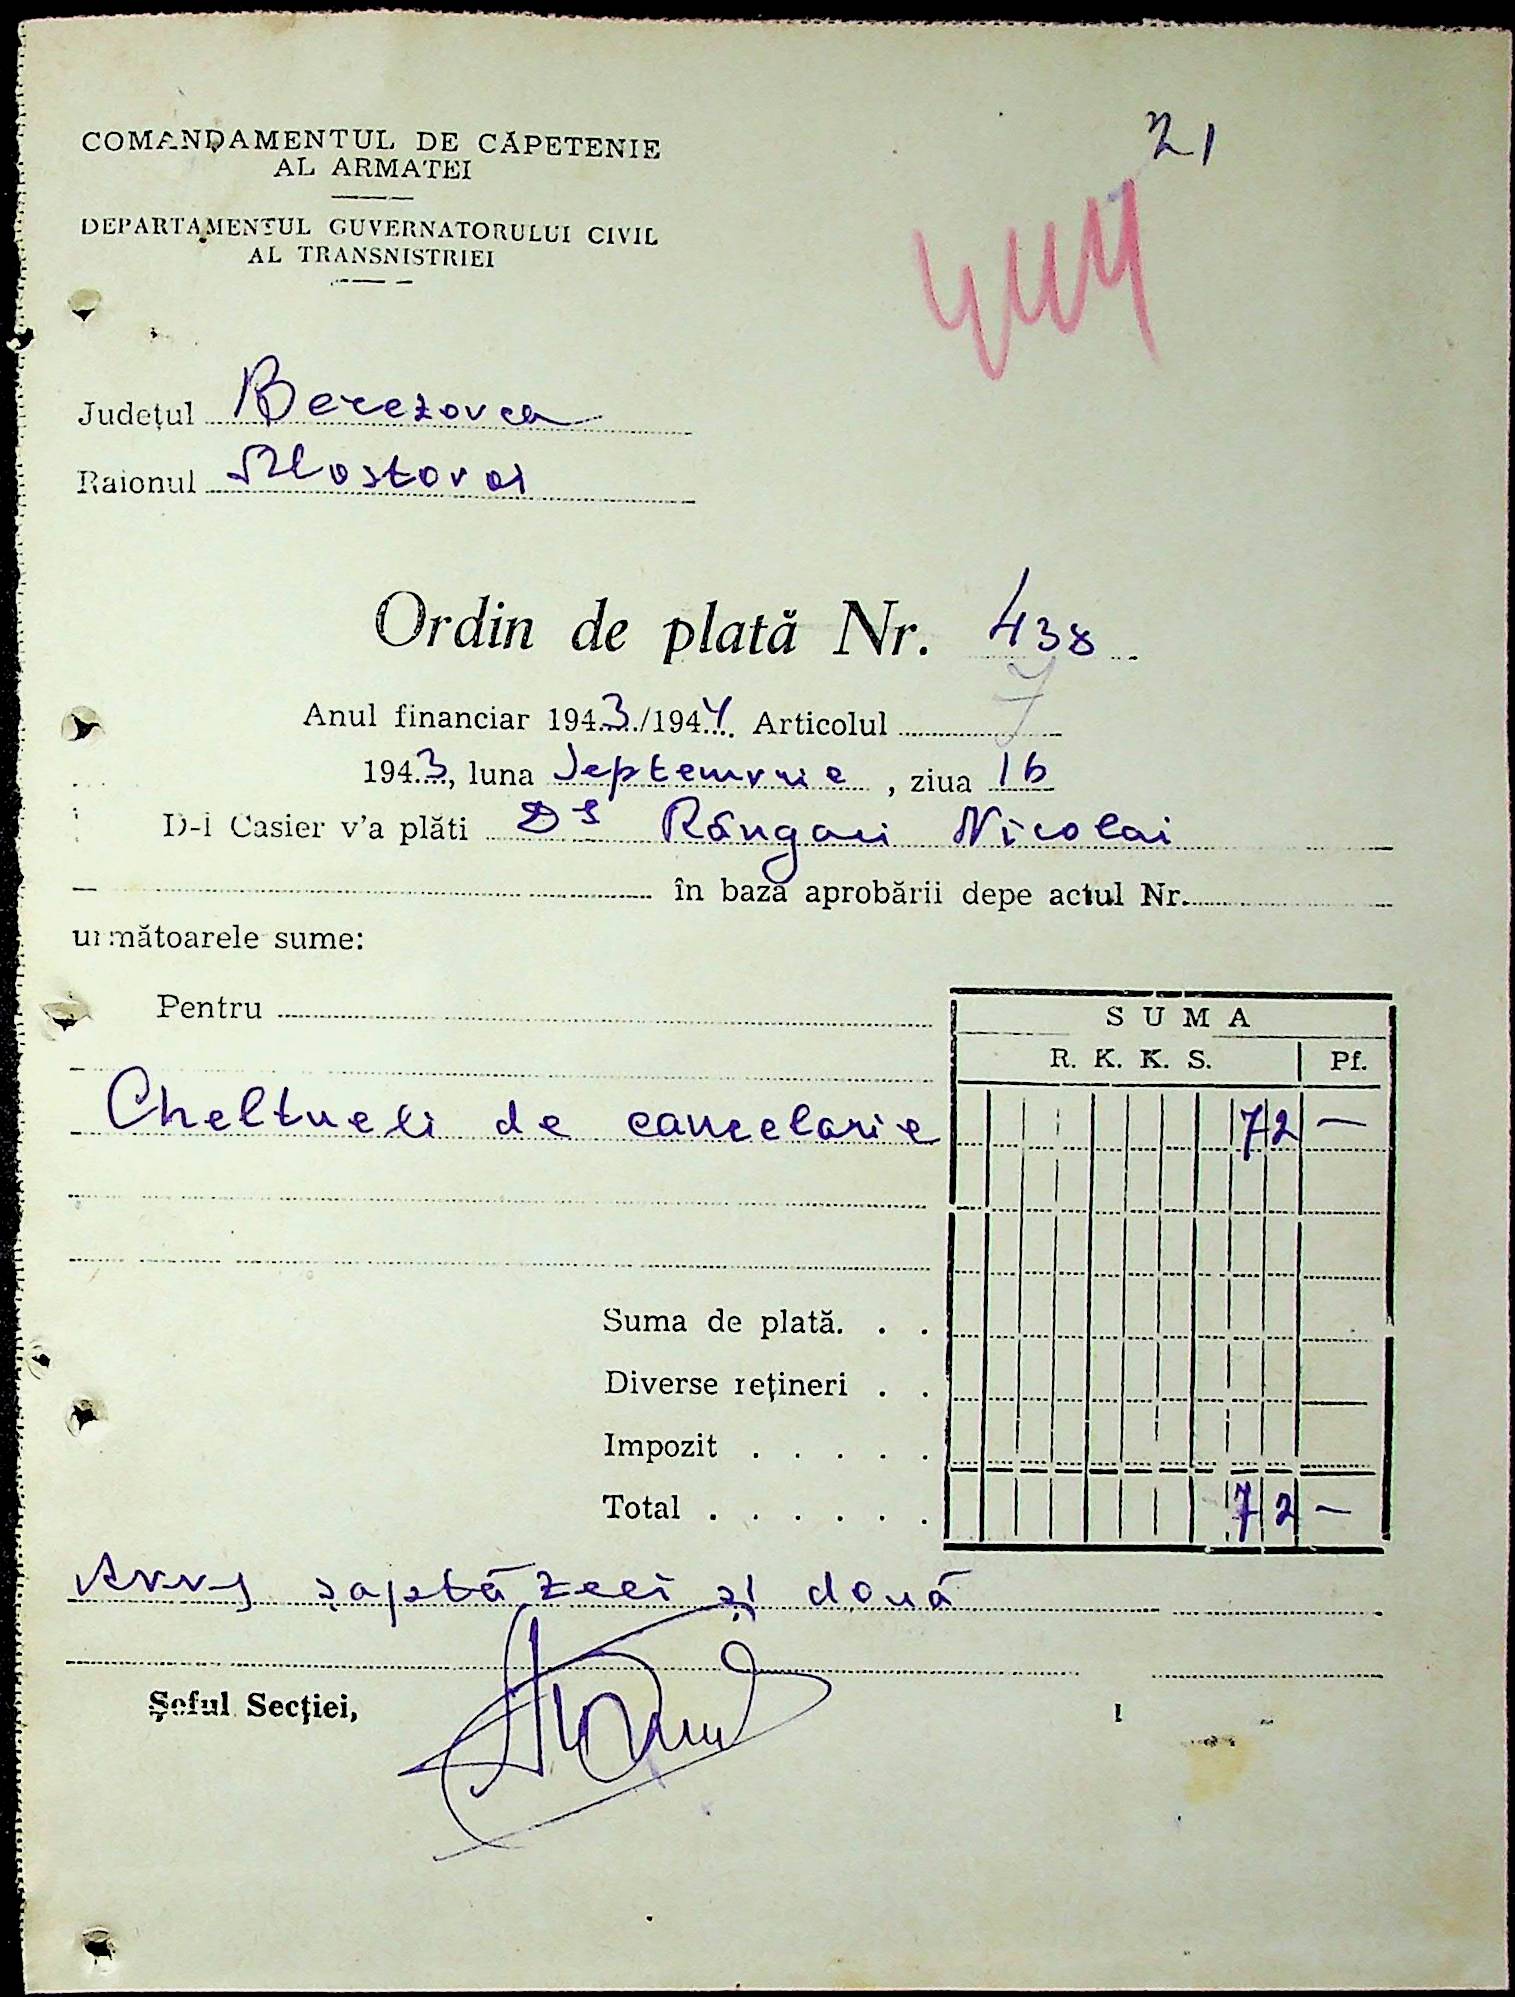 21
COMANDAMENTUL DE CĂPETENIE
AL ARMATEI
DEPARTAMENTUL GUVERNATORULUI CIVIL
AL TRANSNISTRIEI
Județul Berezovca
Raionul Mostovoi
Ordin de plată Nr. 438
Anul financiar 1943/1944. Articolul 7
1943, luna Septemvrie, ziua 16
D-l Casier v'a plăti Dl Rângaci Nicolai
în baza aprobării depe actul Nr.
următoarele sume:
Pentru
SUMA
R. K. K. S. Pf.
Cheltueli de cancelarie 72 —
Suma de plată. . .
Diverse rețineri . .
Impozit . . . . .
Total . . . . . . 72 —
șaptezeci și două
Șeful Secției,